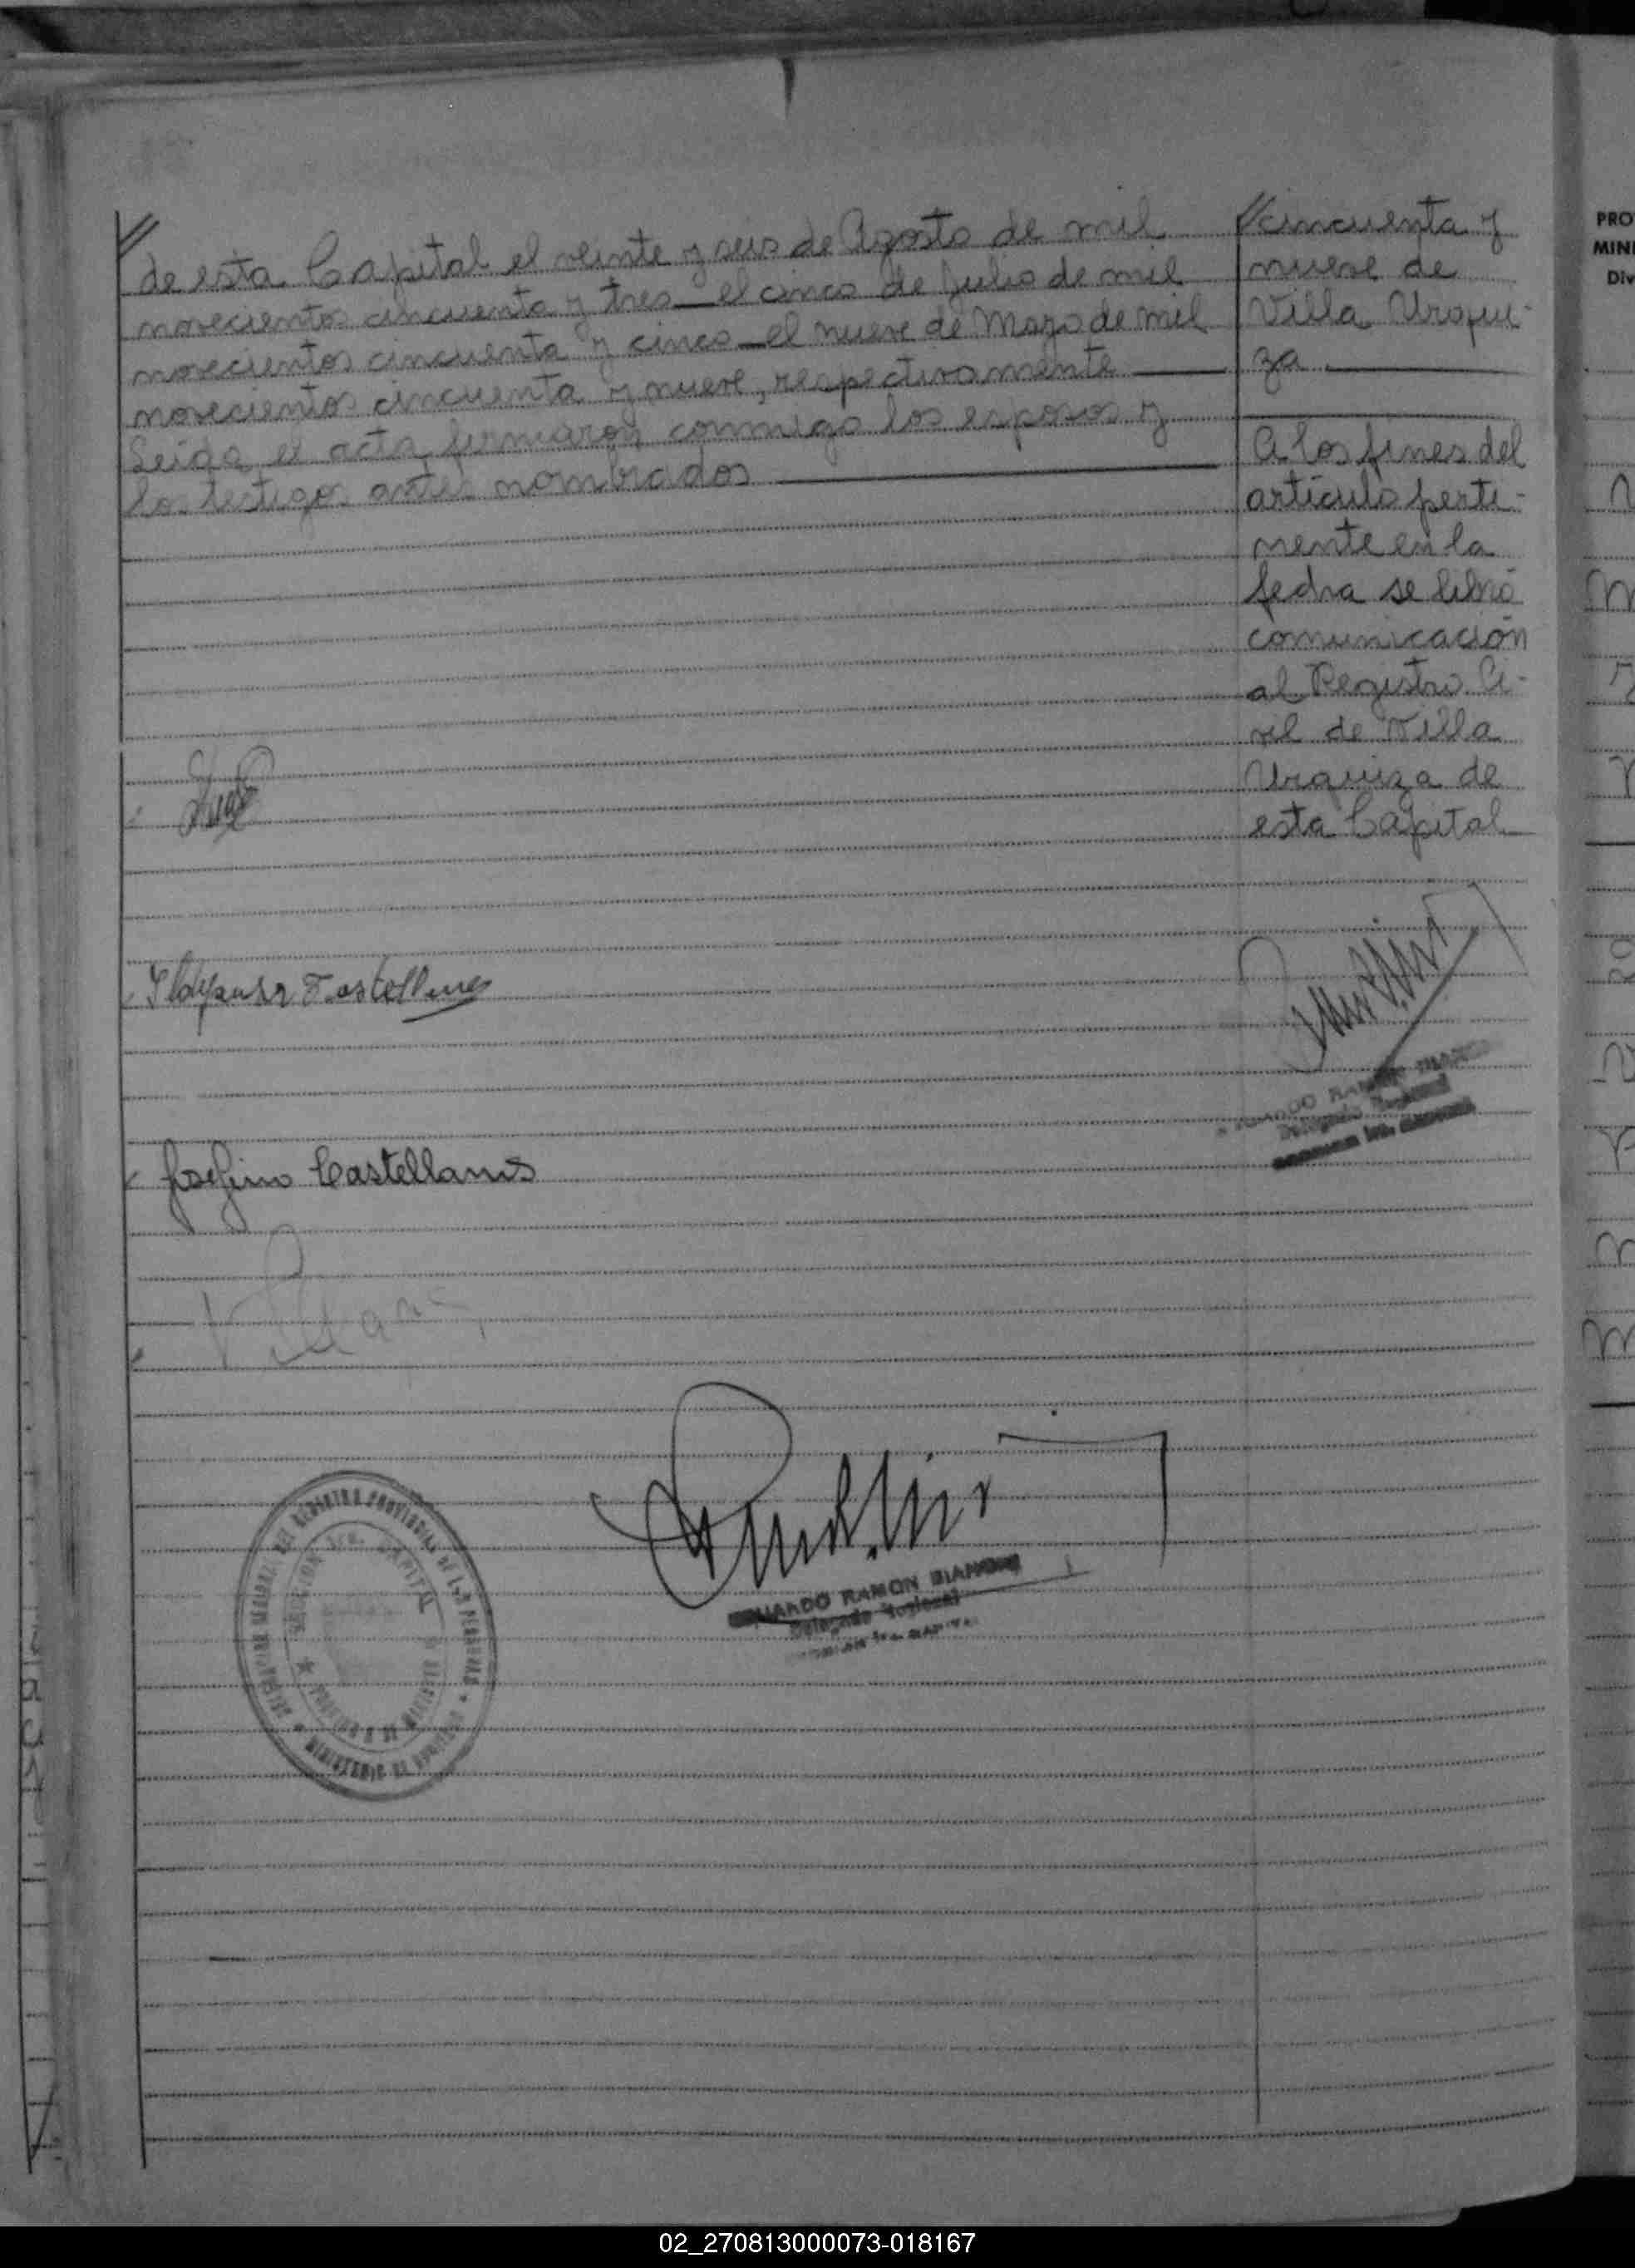 de esta Capital el veinte y seis de Agosto de mil
novecientos cincuenta y tres el cinco de Julio de mil
novecientos cincuenta y cinco el nueve de Mayo de mil
novecientos cincuenta y nueve, respectivamente
Leida el acta, firmaron conmigo los esposos y
los testigos antes nombrados
// cincuenta y
nueve de
Villa Urqui-
za
A los fines del
artículo perti-
nente en la
fecha se libró
comunicación
al Registro Ci-
vil de Villa
Urquiza de
esta Capital
Castellanos
Josefina Castellanos
RAMON
Delegado Regional
EDUARDO RAMON
Delegado Regional
REGISTRO PROVINCIAL DE LAS PERSONAS
CAPITAL
MINISTERIO DE
PRO
MINI
Div
02_270813000073-018167